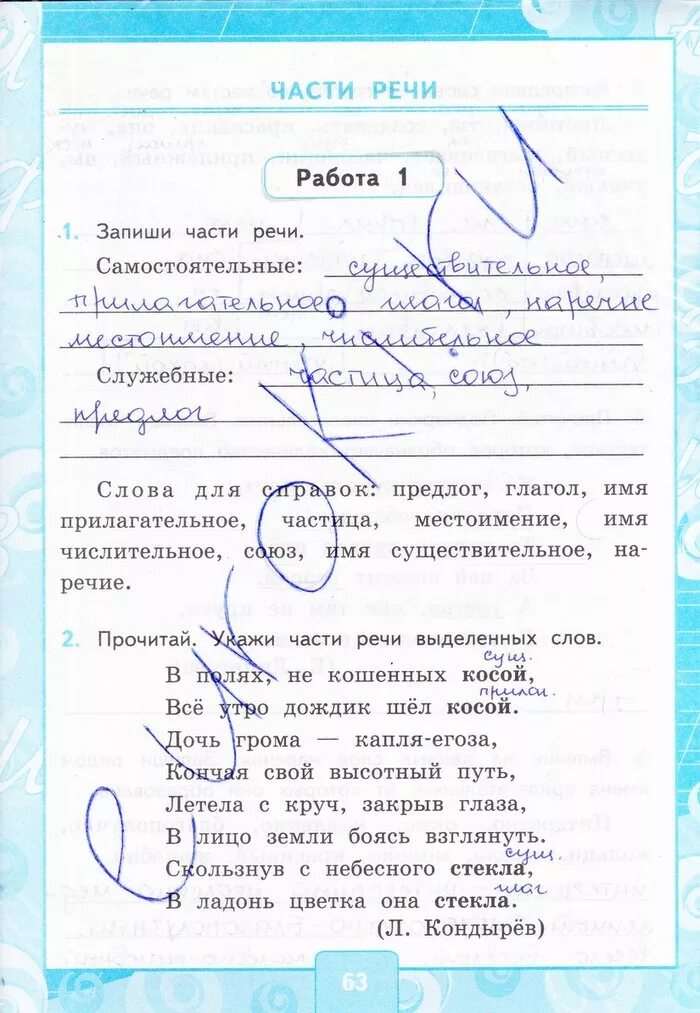 ЧАСТИ РЕЧИ
Работа 1
1. Запиши части речи.
Самостоятельные: существительное,
прилагательное, глагол, наречие
местоимение, числительное
Служебные: частица, союз,
предлог
Слова для справок: предлог, глагол, имя
прилагательное, частица, местоимение, имя
числительное, союз, имя существительное, на-
речие.
2. Прочитай. Укажи части речи выделенных слов.
сущ.
В полях, не кошенных косой,
прилаг.
Всё утро дождик шёл косой.
Дочь грома — капля-егоза,
Кончая свой высотный путь,
Летела с круч, закрыв глаза,
В лицо земли боясь взглянуть.
сущ.
Скользнув с небесного стекла,
глаг
В ладонь цветка она стекла.
(Л. Кондырёв)
63